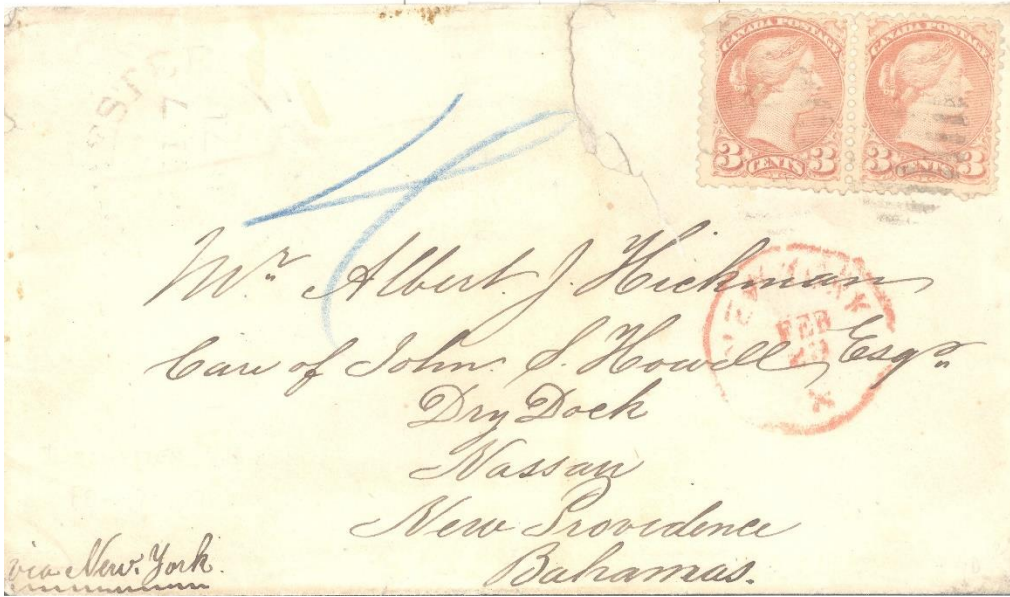 CANADA POSTAGE CANADA POSTAGE
3 CENTS 3 3 CENTS 3
4
Mr. Albert. J. Hickman
Care of John. S. Howell Esqr.
Dry Dock
Nassau
New Providence
Bahamas.
NEW YORK
FEB
via New. York.